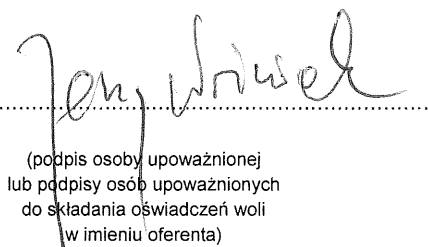 Jerzy
(podpis osoby upoważnionej
lub podpisy osób upoważnionych
do składania oświadczeń woli
w imieniu oferenta)